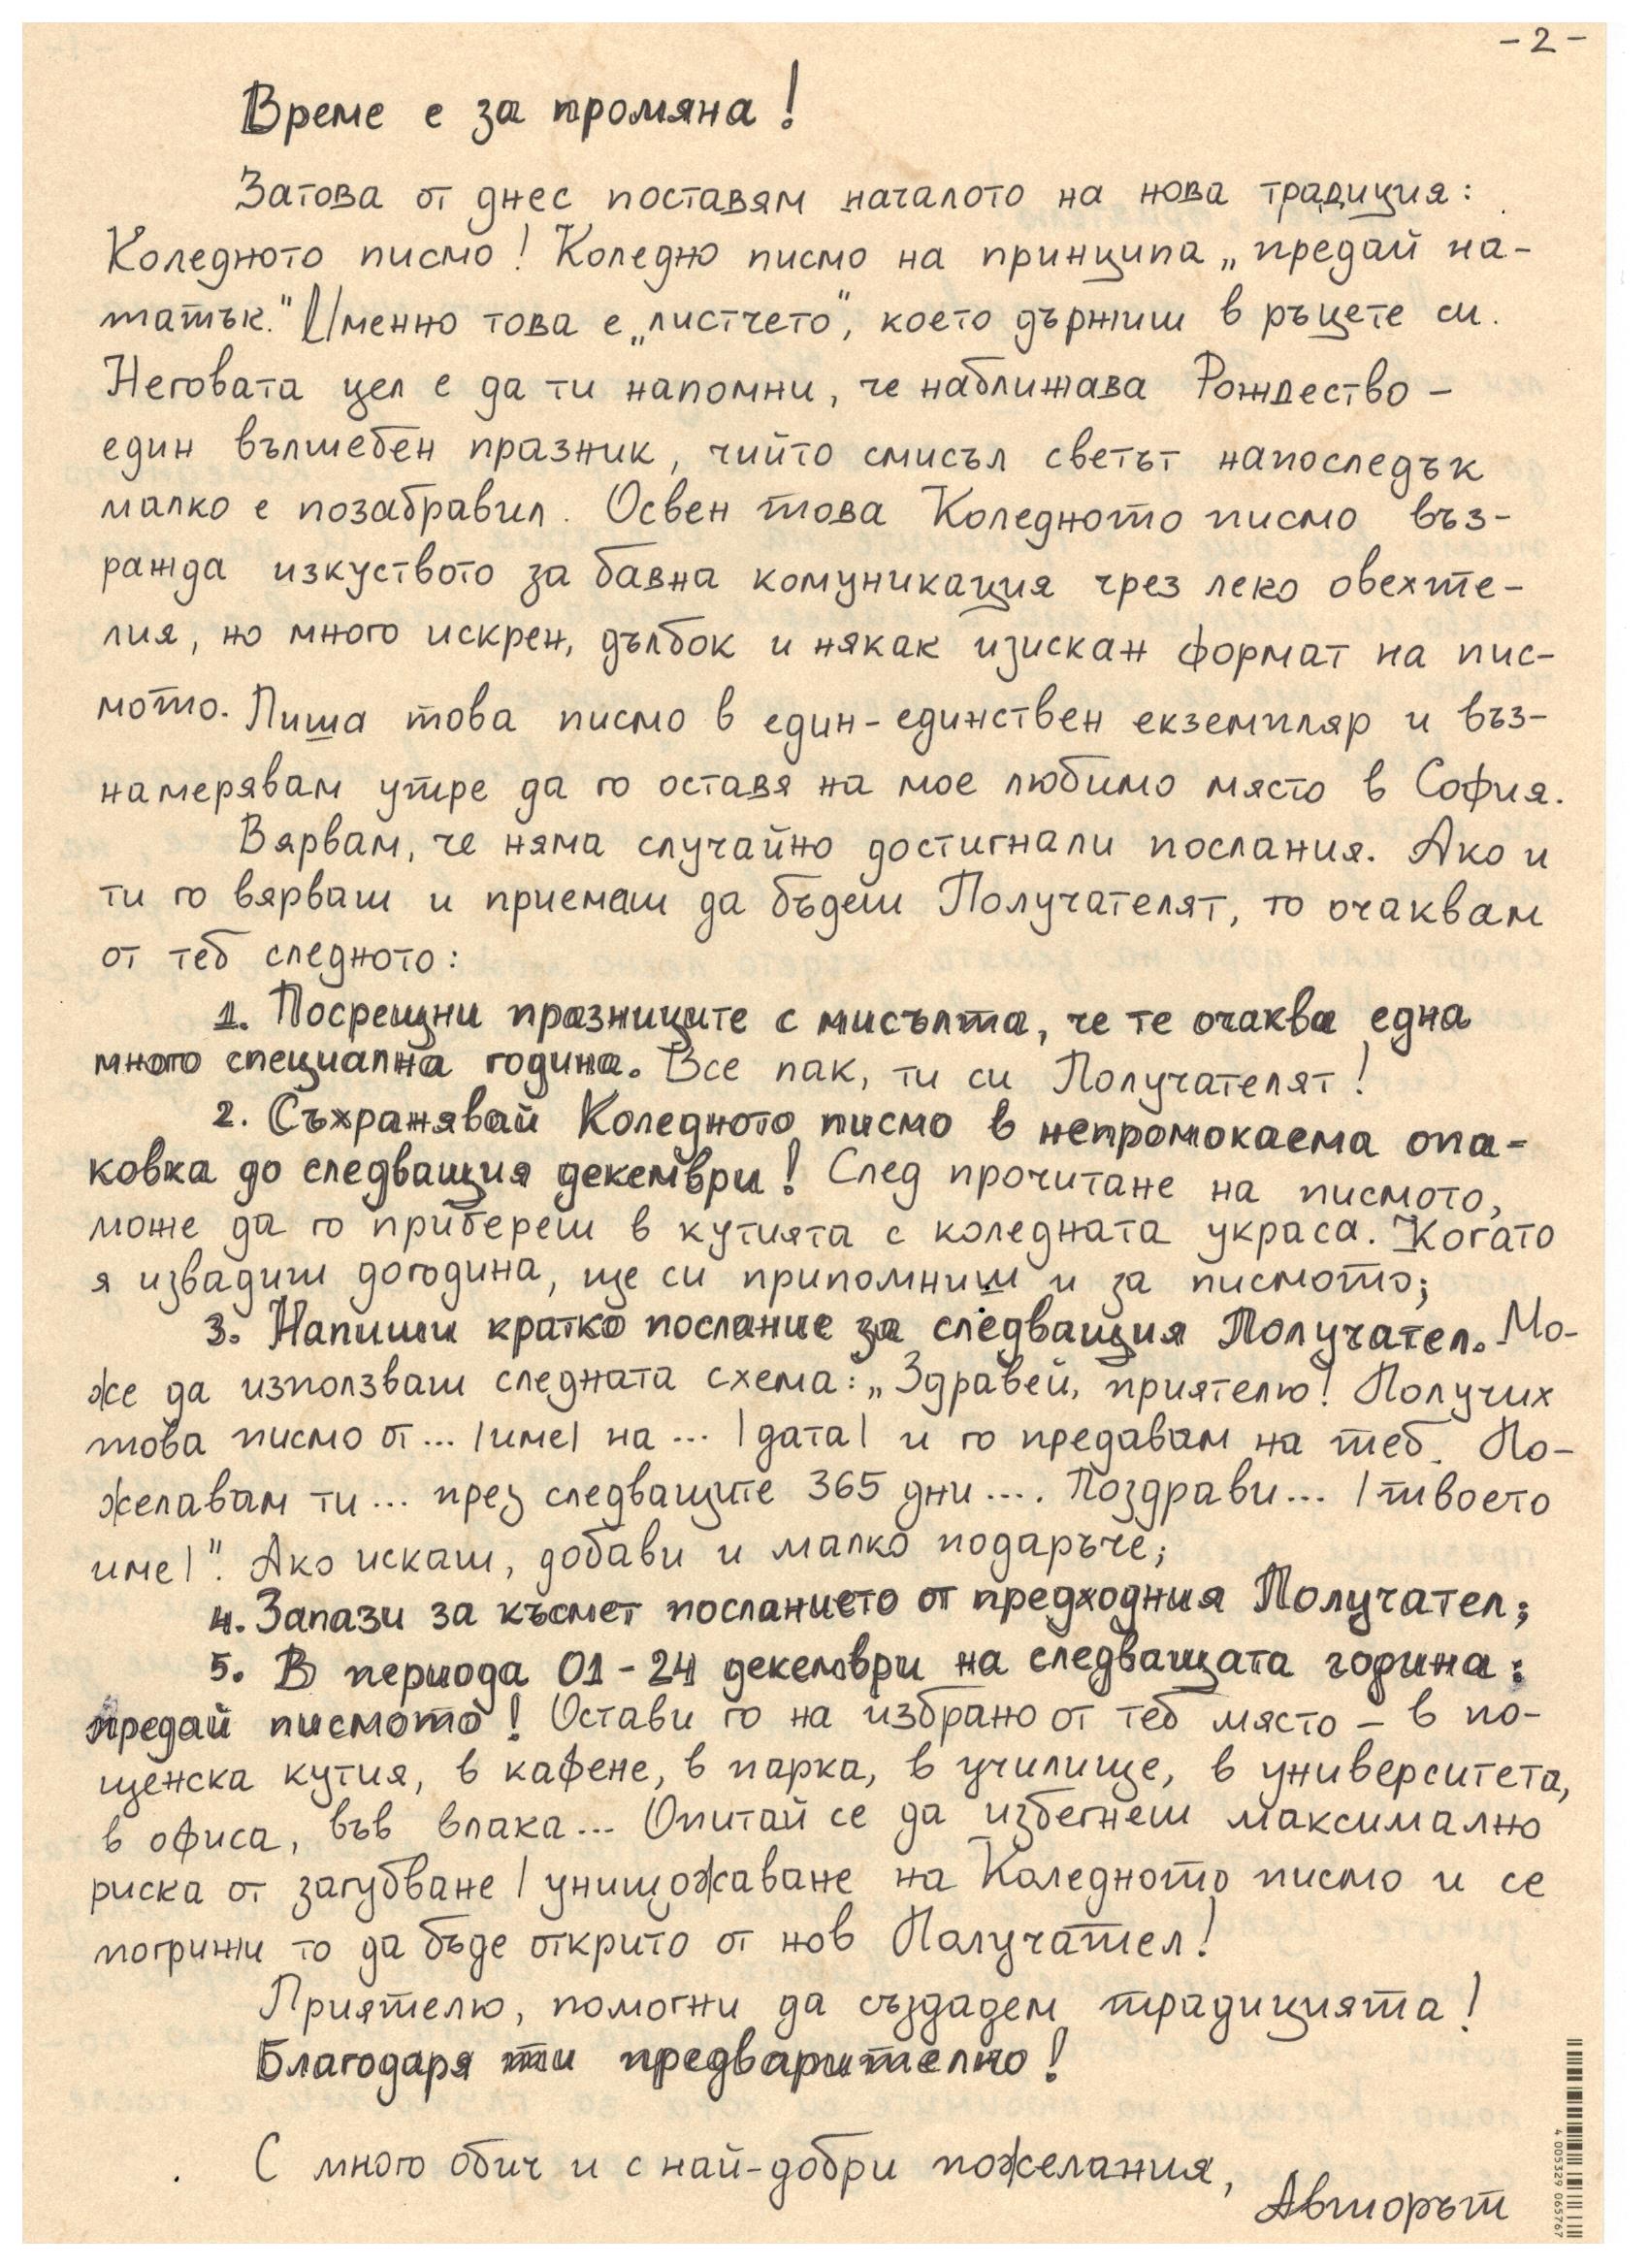 - 2 -
Време е за промяна!
Затова от днес поставям началото на нова традиция:
Коледното писмо! Коледно писмо на принципа „предай на-
татък." Именно това е „листчето", което държиш в ръцете си.
Неговата цел е да ти напомни, че наближава Рождество –
един вълшебен празник, чийто смисъл светът напоследък
малко е позабравил. Освен това Коледното писмо въз-
ражда изкуството за бавна комуникация чрез леко овехте-
лия, но много искрен, дълбок и някак изискан формат на пис-
мото. Пиша това писмо в един-единствен екземпляр и въз-
намерявам утре да го оставя на мое любимо място в София.
Вярвам, че няма случайно достигнали послания. Ако и
ти го вярваш и приемаш да бъдеш Получателят, то очаквам
от теб следното:
1. Посрещни празниците с мисълта, че те очаква една
много специална година. Все пак, ти си Получателят!
2. Съхранявай Коледното писмо в непромокаема опа-
ковка до следващия декември! След прочитане на писмото,
може да го прибереш в кутията с коледната украса. Когато
я извадиш догодина, ще си припомниш и за писмото;
3. Напиши кратко послание за следващия Получател. Мо-
же да използваш следната схема: „Здравей, приятелю! Получих
това писмо от ... /име/ на ... /дата/ и го предавам на теб. По-
желавам ти ... през следващите 365 дни .... Поздрави ... /твоето
име/". Ако искаш, добави и малко подаръче;
4. Запази за късмет посланието от предходния Получател;
5. В периода 01 - 24 декември на следващата година:
предай писмото! Остави го на избрано от теб място – в по-
щенска кутия, в кафене, в парка, в училище, в университета,
в офиса, във влака ... Опитай се да избегнеш максимално
риска от загубване / унищожаване на Коледното писмо и се
погрижи то да бъде открито от нов Получател!
Приятелю, помогни да създадем традицията!
Благодаря ти предварително!
С много обич и с най-добри пожелания,
Авторът
4 005329 065767